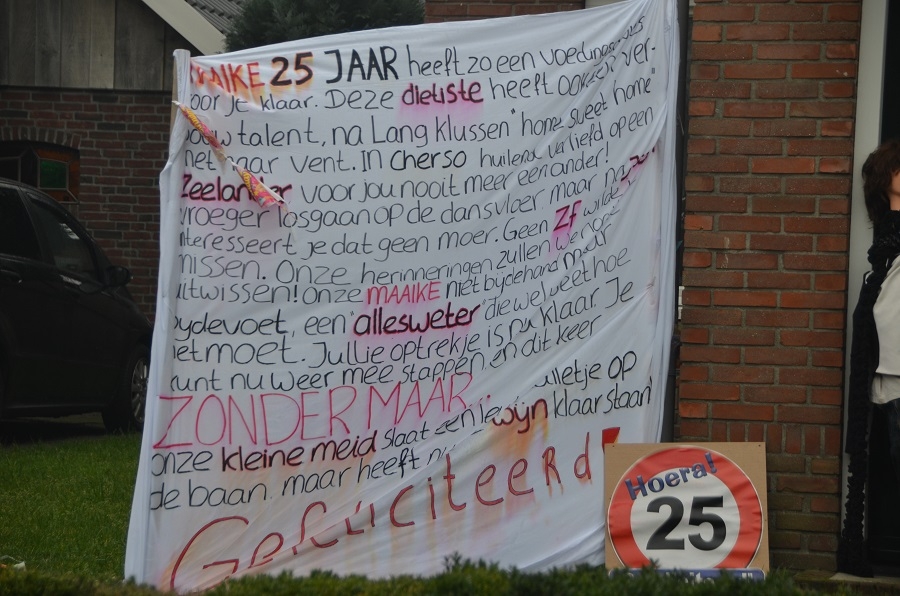 MAIKE 25 JAAR heeft zo een voedings
oor je klaar. Deze diëtiste heeft
ouw talent, na Lang klussen "home sweet home"
net haar vent. In Cherso huilend verliefd op een
Zeelander voor jou nooit meer een ander!
vroeger losgaan op de dansvloer maar nu
nteresseert je dat geen moer. Geen Zf wilde
missen. Onze herinneringen zullen we nooit
uitwissen! Onze MAAIKE niet bydehand maar
bydevoet, een "allesweter" die wel weet hoe
het moet. Jullie optrekje is nu klaar. Je
kunt nu weer mee stappen en dit keer
ZONDER MAAR... ulletje op
onze kleine meid slaat een wyn klaar staan!
de baan. maar heeft nu
Gefeliciteerd!
Hoera!
25